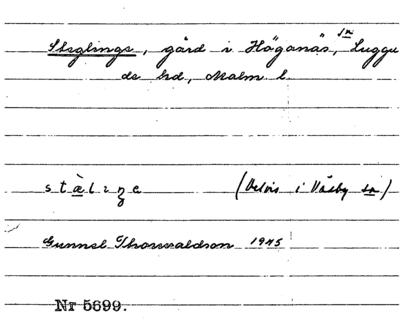 Steglings, gård i Höganäs, sn Luggu
de hd, Malm l.
stæ̀liŋe (Delvis i Väsby sn)
Gunnel Thorvaldson 1945
Nr 5699.